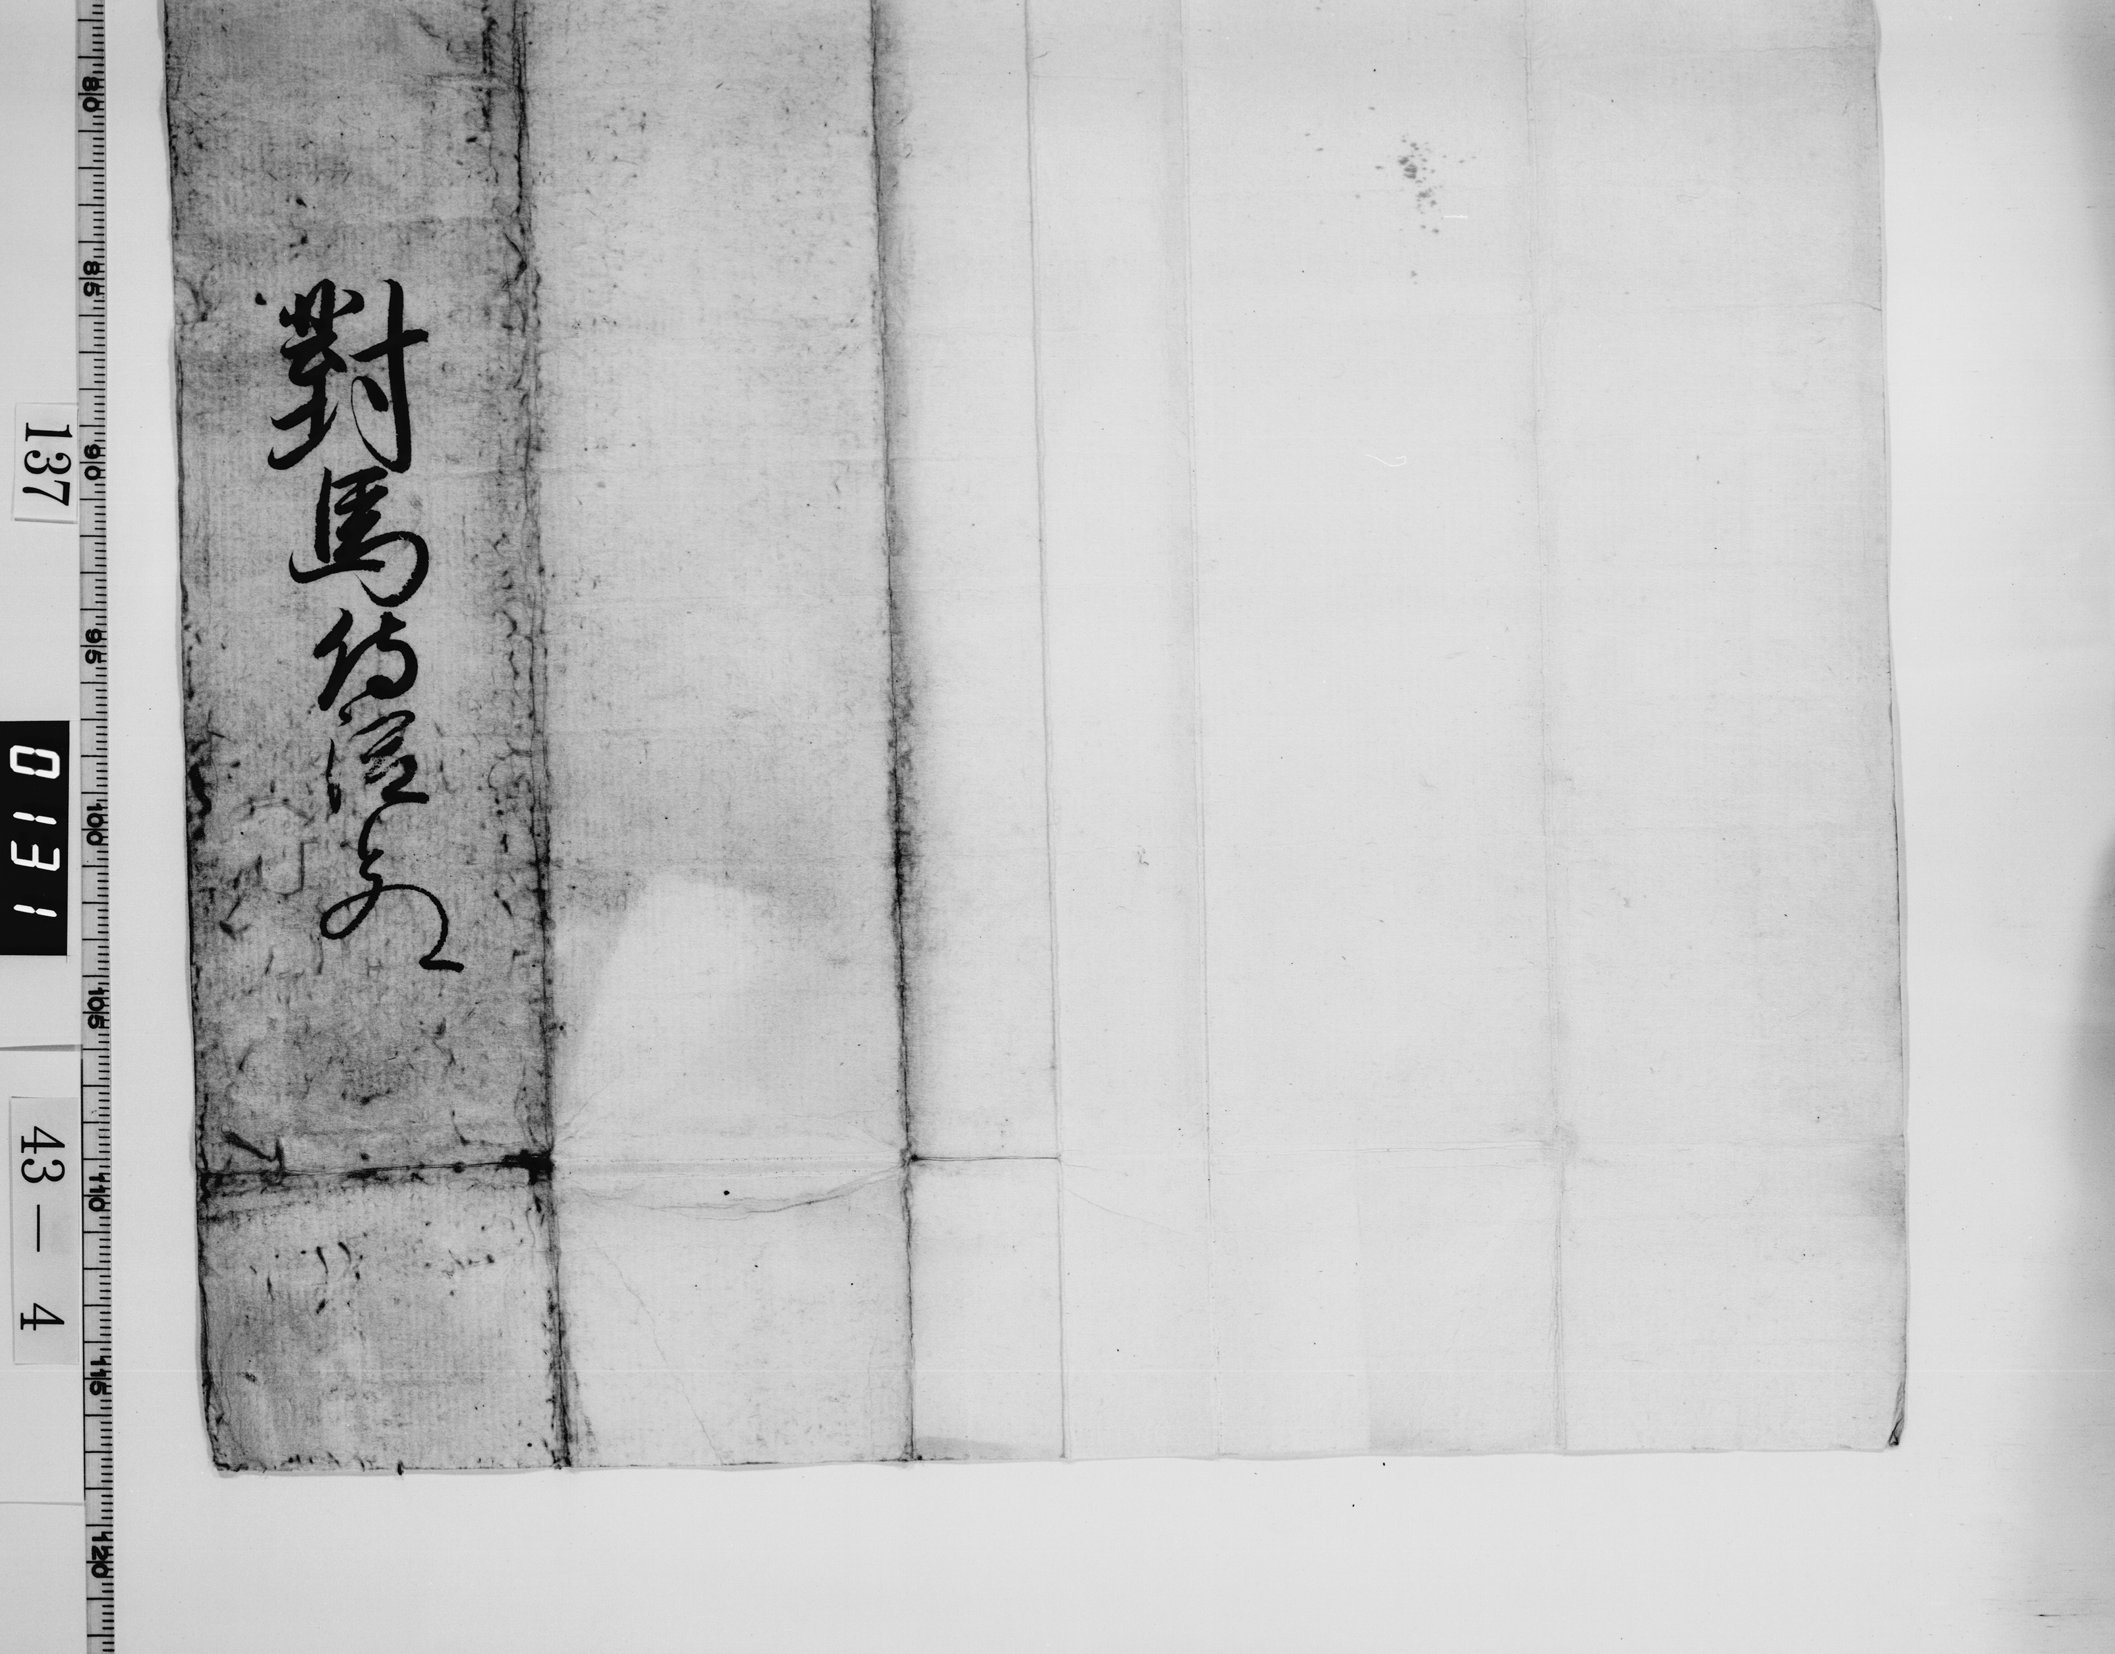 對馬侍従殿
137
0131
43—4
80
85
90
95
100
105
110
115
120